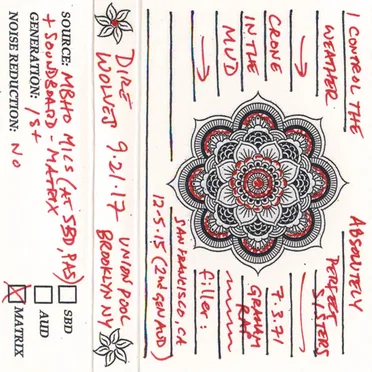 I CONTROL THE
WEATHER
→
CRONE
IN THE
MUD
→
ABSOLUTELY
PERFECT
SISTERS
7.3.71
GRAHAM
filler:
SAN FRANCISCO, CA
12.5.15 (2nd GEN AUD)
DIRE
WOLVES 9.21.17 UNION POOL
BROOKLYN NY
SOURCE: MBHO MICS (AT SBD,
+ SOUNDBOARD - MATRIX
GENERATION: 1st
NOISE REDUCTION: NO
SBD
AUD
MATRIX